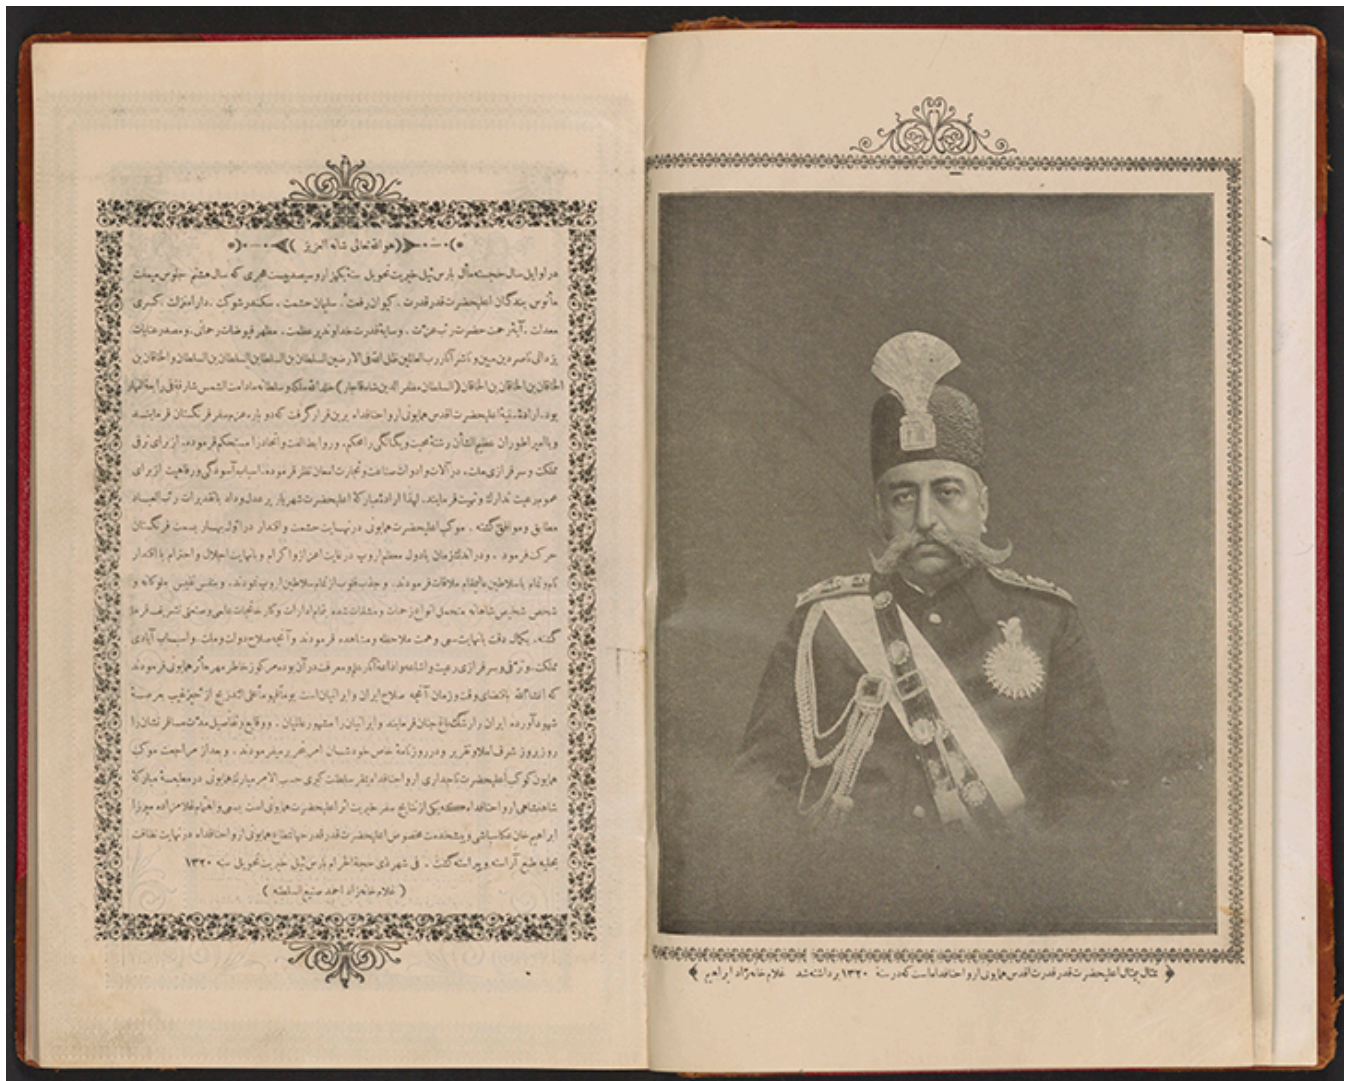 هوالله تعالی شانه العزیز
در اوایل سال خجسته مآل بارس ئیل خیریت تحویل سنهٔ یکهزار و سیصد و بیست هجری که سال هشتم جلوس میمنت
مأنوس بندگان اعلیحضرت قدر قدرت . کیوان رفعت . سلیمان حشمت . سکندر شوکت . دارا منزلت . کسری
معدلت . آیهٔ رحمت حضرت رب عزت . و سایهٔ قدرت خداوند پر عظمت . مظهر فیوضات رحمانی . و مصدر عنایات
یزدانی ناصر دین مبین و ناشر آثار رب العالمین ظل الله فی الارضین السلطان بن السلطان بن السلطان بن السلطان و الخاقان بن
الخاقان بن الخاقان بن الخاقان (السلطان مظفر الدین شاه قاجار) خلد الله ملکه و سلطانه مادامت الشمس شارقة فی رابعة النهار
بود . ارادهٔ سنیهٔ اعلیحضرت اقدس همایونی ارواحنا فداه برین قرار گرفت که دوباره عزم سفر فرنگستان فرمایند
و با امپراطوران عظیم الشأن رشتهٔ محبت و یگانگی را محکم . و روابط الفت و اتحاد را مستحکم فرموده . از برای ترقی
مملکت و سرفرازی ملت . در آلات و ادوات صناعت و تجارت امعان نظر فرموده . اسباب آسودگی و رفاهیت از برای
عموم رعیت تدارک و تهیت فرمایند . لهذا ارادهٔ مبارکهٔ اعلیحضرت شهریار پر عدل و داد با تقدیرات رب العباد
مطابق و موافق گشته . موکب اعلیحضرت همایونی در نهایت حشمت و اقتدار در اول بهار بسمت فرنگستان
حرکت فرمود . و در اندک زمان با دول معظم اروپ در غایت اعزاز و اکرام و با نهایت اجلال و احترام با اقتدار
تام و تمام با سلاطین عالیمقام ملاقات فرمودند . و جذب قلوب از تمام سلاطین اروپ نمودند . و بنفس نفیس ملوکانه و
شخص شخیص شاهانه متحمل انواع زحمات و مشقات شده تمام ادارات و کارخانجات علمی و صنعتی تشریف فرما
گشته . بکمال دقت با نهایت سعی و همت ملاحظه و مشاهده فرمودند و آنچه صلاح دولت و ملت و اسباب آبادی
مملکت . و ترقی و سرفرازی رعیت و اشاعه و اذاعهٔ آثار علم و معرفت در آن بوده مرکوز خاطر مهر مآثر همایونی فرمودند
که انشاءالله باقتضای وقت و زمان آنچه صلاح ایران و ایرانیان است یوماً فیوماً علی التدریج از حیز غیب بعرصهٔ
شهود آورده ایران را رشک باغ جنان فرمایند و ایرانیان را مشهور عالمیان . و وقایع و تفاصیل مدت مسافرتشان را
روز بروز شرف املا و تقریر و در روزنامهٔ خاص خودشان امر تحریر میفرمودند . و بعد از مراجعت موکب
همایون کوکب اعلیحضرت تاجداری ارواحنا فداه بمقر سلطنت کبری حسب الامر مبارک همایونی در مطبعهٔ مبارکهٔ
شاهنشاهی ارواحنا فداه که یکی از نتایج سفر خیریت اثر اعلیحضرت همایونی است بسعی و اهتمام غلامزاده میرزا
ابراهیم خان عکاسباشی و پیشخدمت مخصوص اعلیحضرت قدر قدر جهانمطاع همایونی ارواحنا فداه در نهایت نظافت
بحلیهٔ طبع آراسته و پیراسته گشت . فی شهر ذی حجة الحرام بارس ئیل خیریت تحویل سنه ۱۳۲۰
( غلام خانه‌زاد احمد صنیع السلطنه )
تمثال بیمثال اعلیحضرت قدر قدرت اقدس همایونی ارواحنا فداه است که در سنهٔ ۱۳۲۰ برداشته شد غلام خانه‌زاد ابراهیم